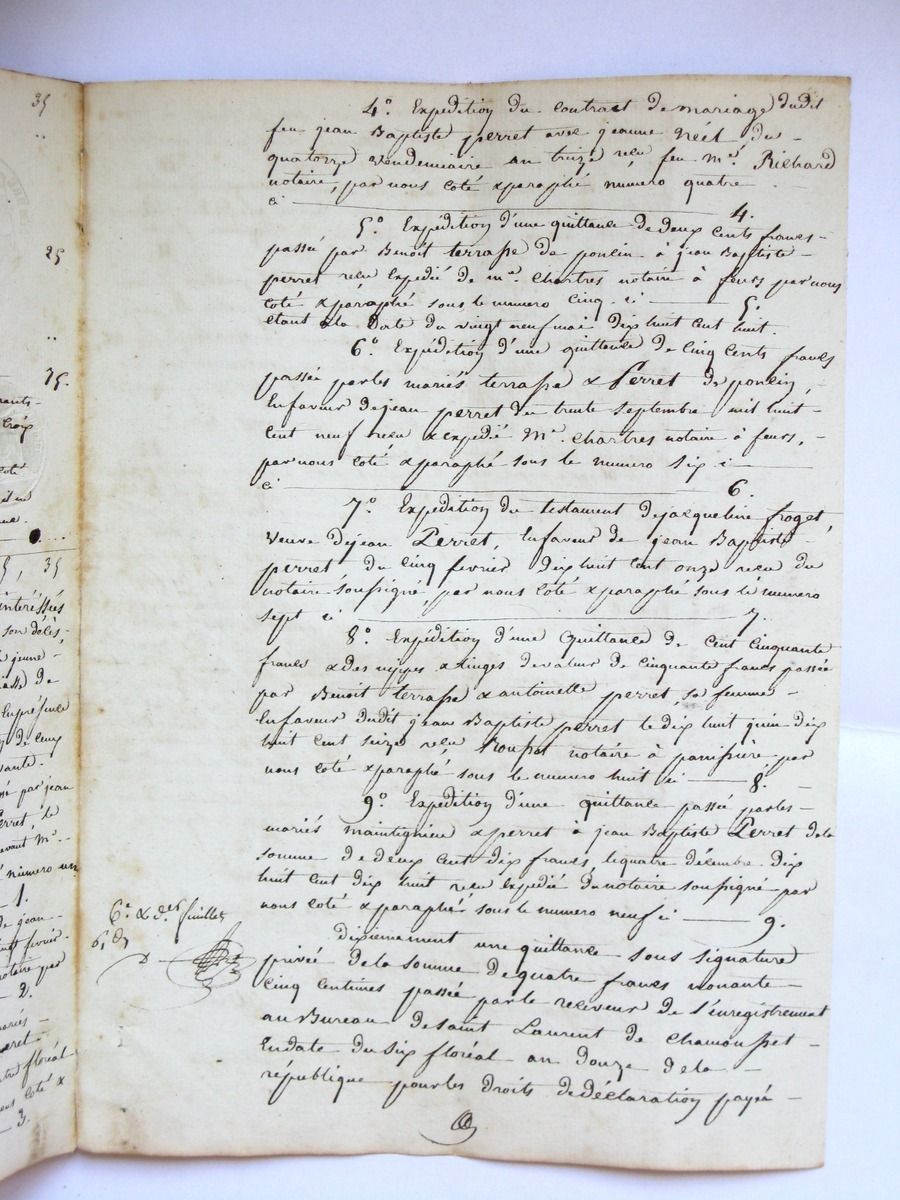 35
25
75.
4.° Expédition du contract de mariage dudit
feu jean Baptiste perret avec jeanne Néel, du
quatorze vendemiaire an treize reçu feu M.e Richard
notaire, par nous coté & paraphé numero quatre
ci 4.
5.° Expédition d'une quittance de deux cents francs
passée par Benoit terrasse de poncin à jean Baptiste
perret reçu expedié de m.e Chartres notaire à feurs par nous
coté & paraphé sous le numero cinq ci 5.
etant à la date du vingt neuf mai dix huit cent huit.
6.° Expédition d'une quittance de cinq cents francs
passée par les mariés terrasse & Perret de poncin,
En faveur de jean perret du trente septembre mil huit
cent neuf reçu & expedié M.e Chartres notaire à feurs,
par nous coté & paraphé sous le numero six i
ci 6.
7.° Expédition du testament de jacqueline froget,
veuve de jean Perret, En faveur de jean Baptiste
perret du cinq fevrier dix huit cent onze reçu du
notaire soussigné, par nous coté & paraphé sous le numero
sept ci 7.
8.° Expédition d'une Quittance de cent cinquante
francs & des nippes & linges de valeur de cinquante francs passée
par Benoit terrasse & antoinette perret, sa femme
En faveur dudit jean Baptiste perret le dix huit juin dix
huit cent seize reçu notaire à panissière, par
nous coté & paraphé sous le numero huit ci 8.
9.° Expédition d'une quittance passée par les
mariés maintignieu & perret à jean Baptiste Perret de la
somme de deux cent dix francs, le quatre décembre dix
huit cent dix huit reçu expedié du notaire soussigné par
nous coté & paraphé sous le numero neuf i 9.
6.e & d.er feuillet
dixiemement une quittance sous signature
privée de la somme de quatre francs nonante
cinq centimes passée par le receveur de l'enregistrement
au Bureau de saint Laurent de Chamousset
En date du six floréal an douze de la
république pour les droits de déclaration payés